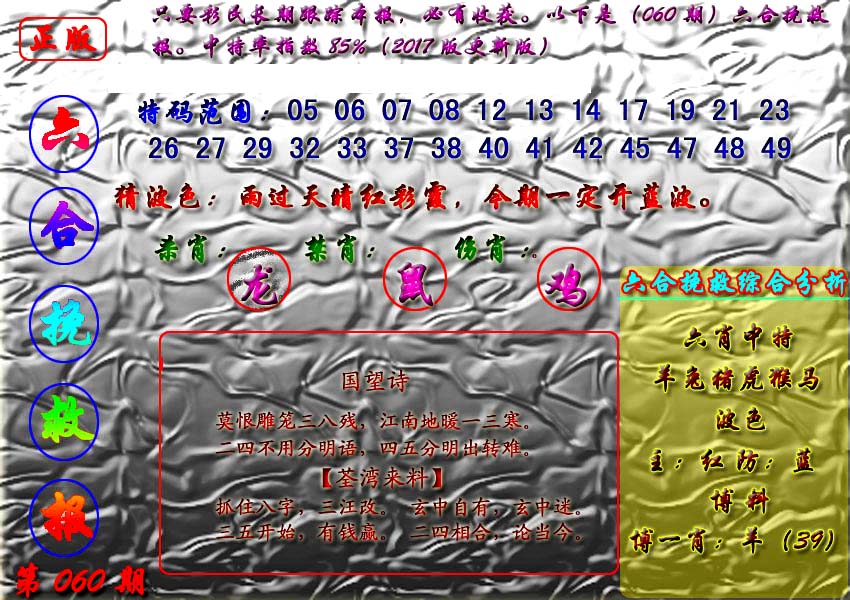 正版
只要彩民长期跟踪本报，必有收获。以下是（060期）六合挽救
报。中特率指数85%（2017版更新版）
六合挽救报
第060期
特码范围：05 06 07 08 12 13 14 17 19 21 23
26 27 29 32 33 37 38 40 41 42 45 47 48 49
猜波色：雨过天晴红彩霞，今期一定开蓝波。
杀肖：龙 禁肖：鼠 伤肖：鸡。
国望诗
莫恨雕笼三八残，江南地暖一三寒。
二四不用分明语，四五分明出转难。
【荃湾来料】
抓住八字，三汪改。 玄中自有，玄中迷。
三五开始，有钱赢。 二四相合，论当今。
六合挽救综合分析
六肖中特
羊兔猪虎猴马
波色
主：红防：蓝
博料
博一肖：羊（39）